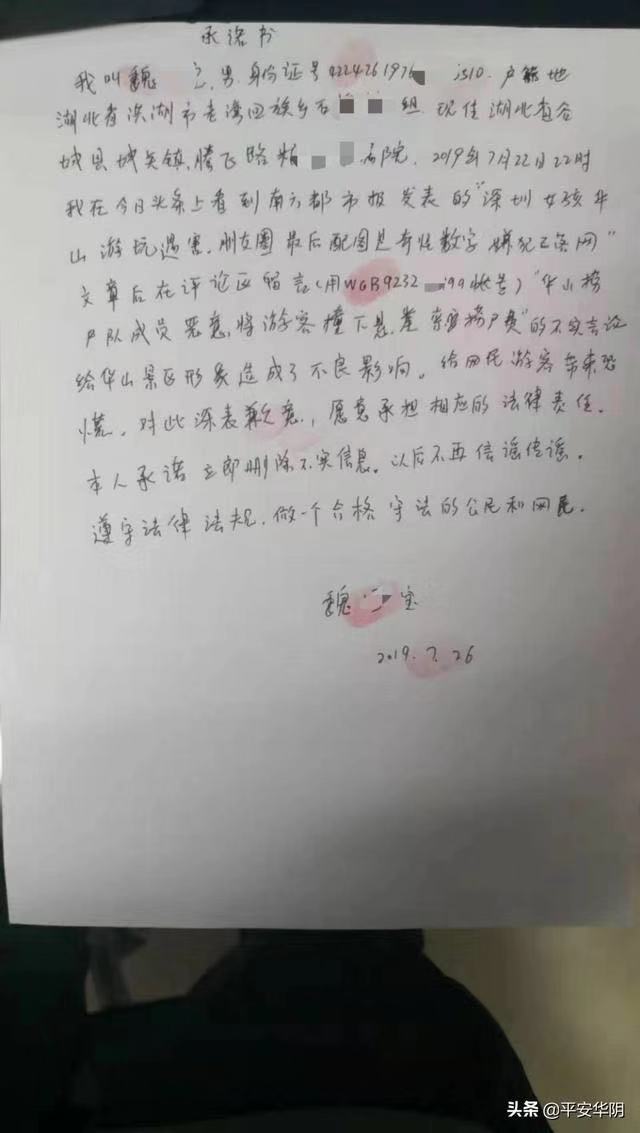 承诺书
我叫魏 男,身份证号4224261976 1510.户籍地
湖北省洪湖市老湾回族乡石 组.现住湖北省谷
城县城关镇,腾飞路 名院.2019年7月22日22时
我在今日头条上看到南方都市报发表的"深圳女孩华
山游玩遇害.朋友圈最后配图是奇怪数字 嫌犯已落网"
文章后在评论区留言(用WGB9232 199账号)"华山
队成员恶意,将游客撞下悬崖 费"的不实言论
给华山景区形象造成了不良影响。给网民游客带来恐
慌.对此深表歉意,愿意承担相应的法律责任.
本人承诺立即删除不实信息.以后不再信谣传谣。
遵守法律法规.做一个合格守法的公民和网民.
魏 宝
2019.7.26
头条@平安华阴